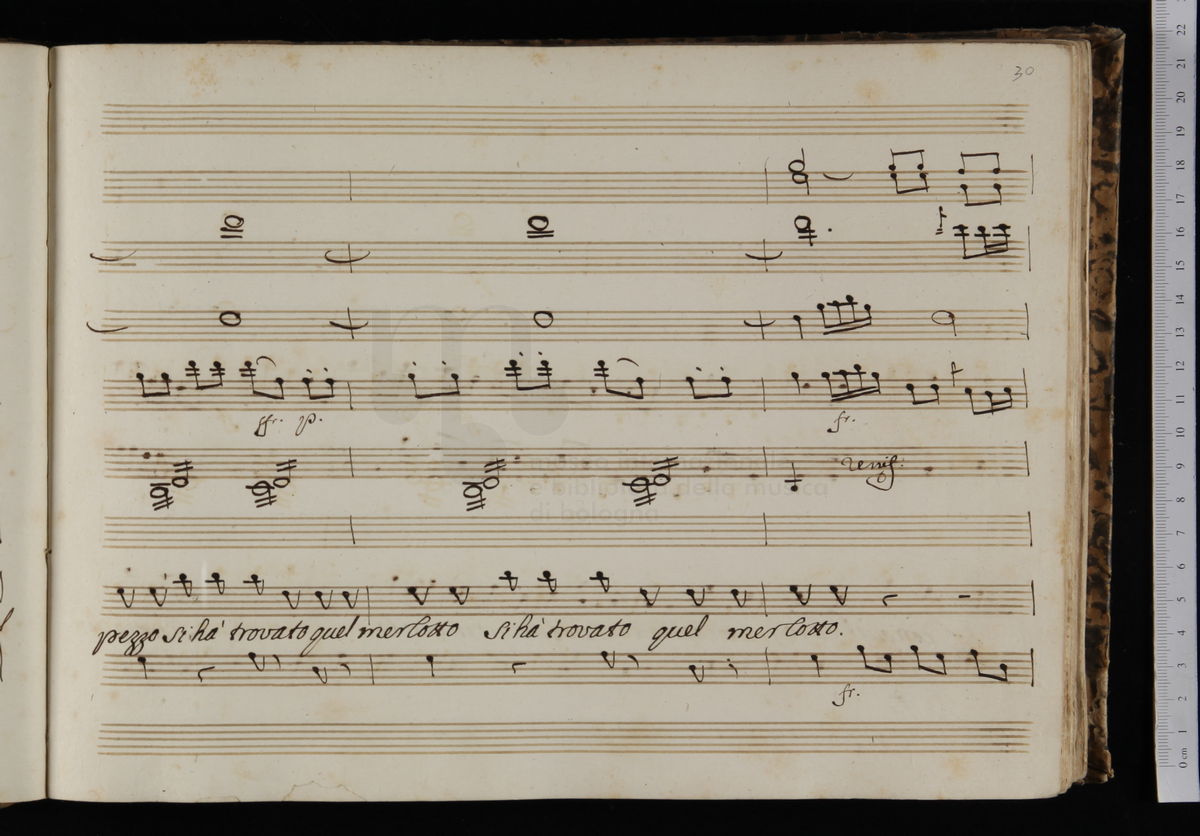 30
fr. p.
unis:
e biblioteca della musica
di bologna
fr.
pezzo si hà trovato quel merlotto si hà trovato quel merlotto.
fr.
22
21
20
19
18
17
16
15
14
13
12
11
10
9
8
7
6
5
4
3
2
1
0 cm